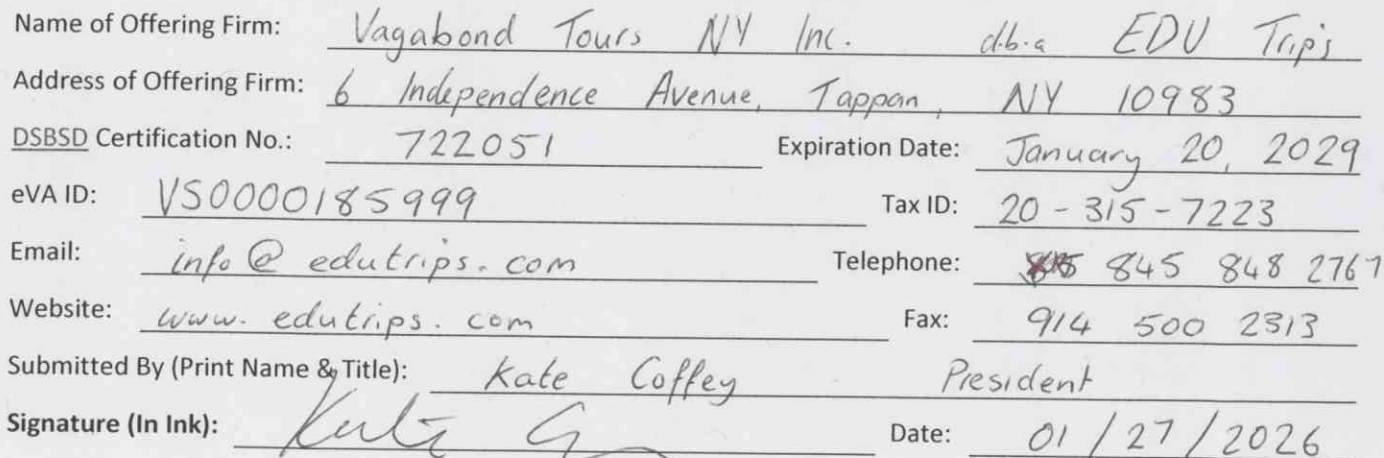 Name of Offering Firm: Vagabond Tours NY Inc. d.b.a EDU Trips
Address of Offering Firm: 6 Independence Avenue, Tappan, NY 10983
DSBSD Certification No.: 722051 Expiration Date: January 20, 2029
eVA ID: VS0000185999 Tax ID: 20-315-7223
Email: info@edutrips.com Telephone: 845 848 2767
Website: www.edutrips.com Fax: 914 500 2313
Submitted By (Print Name & Title): Kate Coffey President
Signature (In Ink): Date: 01/27/2026